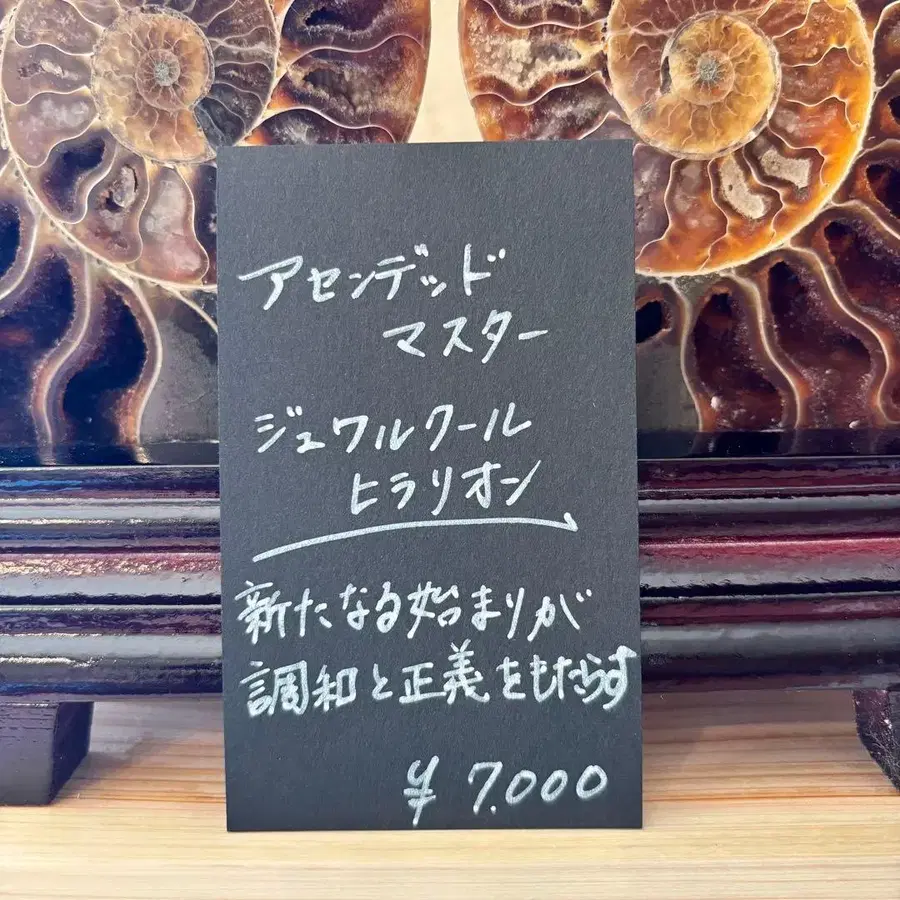 アセンデッド
マスター
ジュワルクール
ヒラリオン
新たなる始まりが
調和と正義をもたらす
¥ 7.000